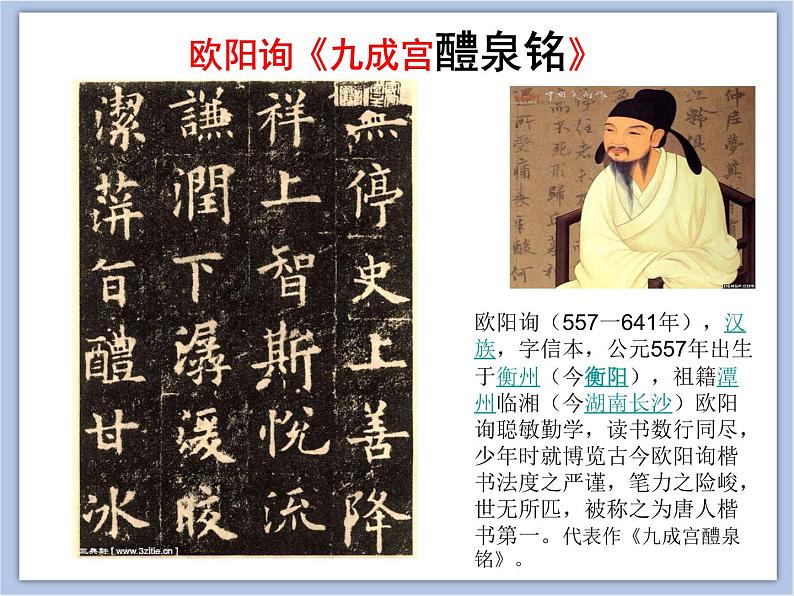 欧阳询《九成宫醴泉铭》
無停史上善降
祥上智斯悦流
謙潤下潺湲皎
潔蓱旨醴甘冰
三典轩 [ www.3zitie.cn ]
仲尼夢奠
欧阳询（557一641年），汉
族，字信本，公元557年出生
于衡州（今衡阳），祖籍潭
州临湘（今湖南长沙）欧阳
询聪敏勤学，读书数行同尽，
少年时就博览古今欧阳询楷
书法度之严谨，笔力之险峻，
世无所匹，被称之为唐人楷
书第一。代表作《九成宫醴泉
铭》。